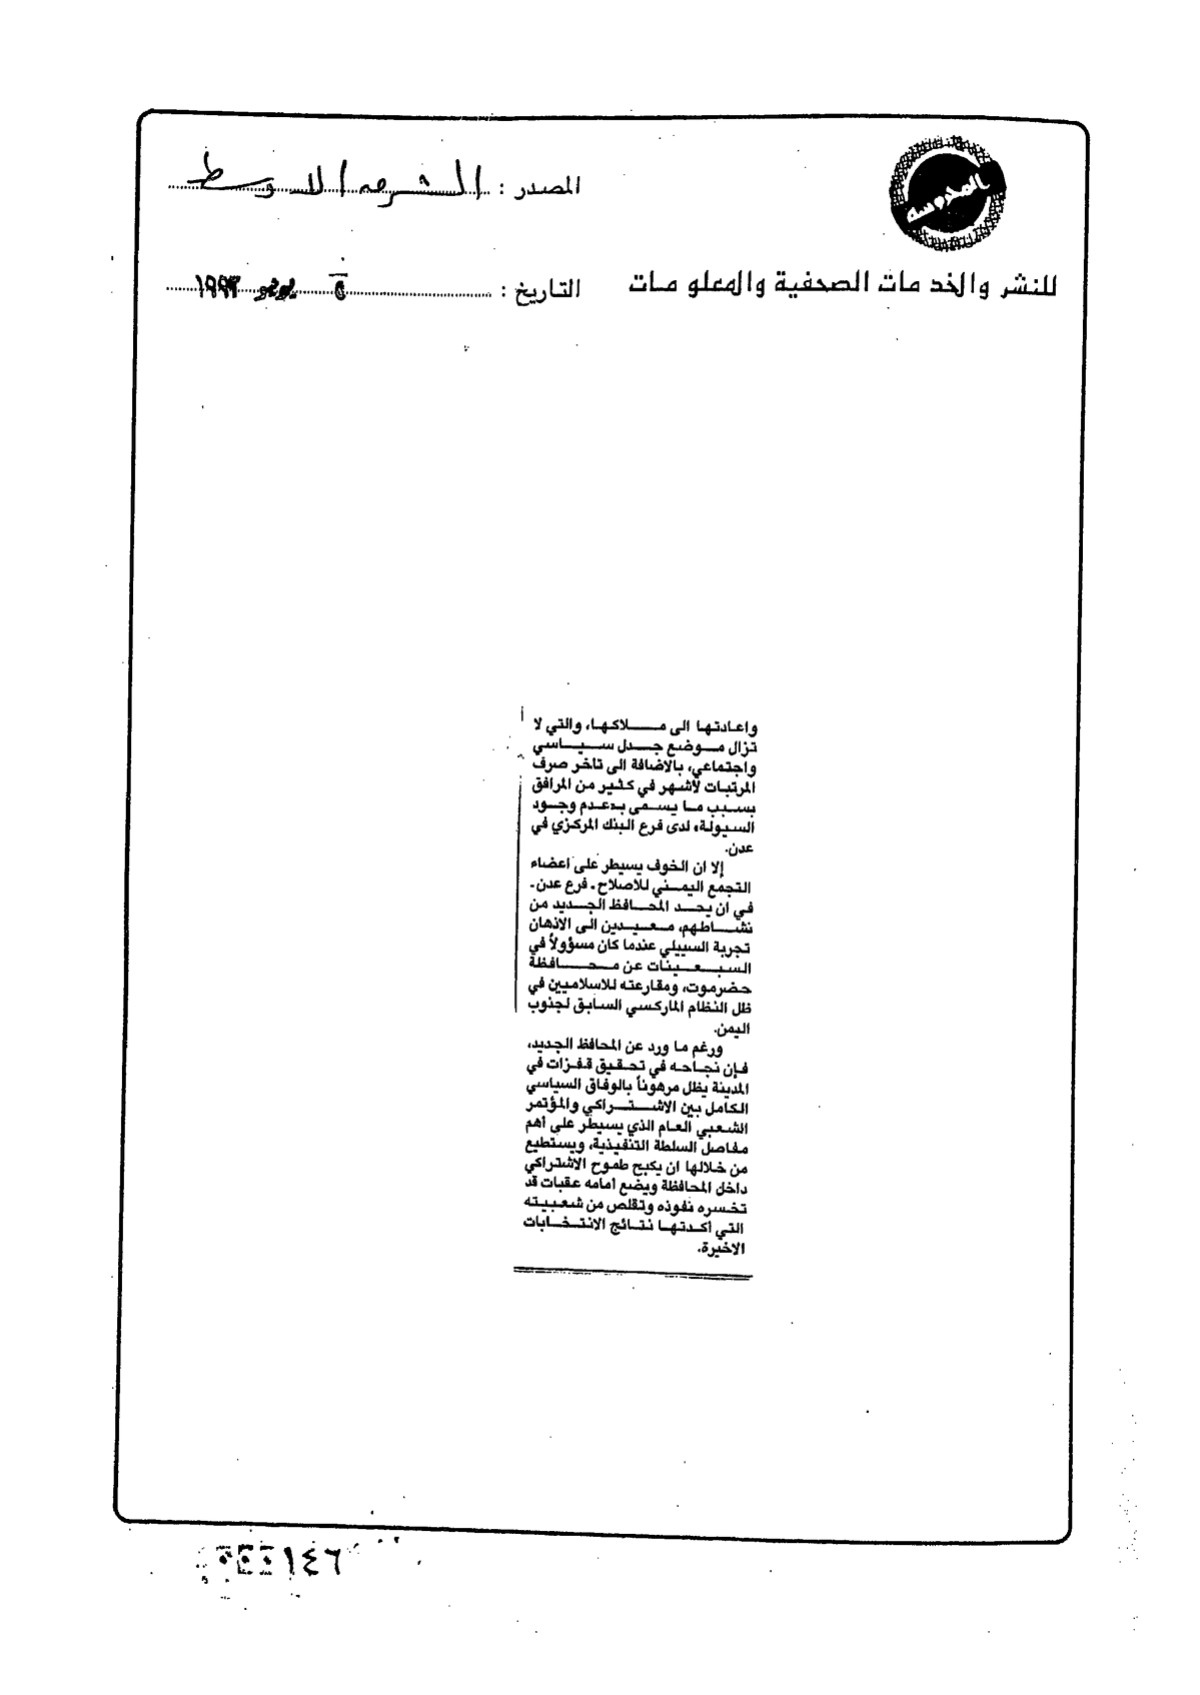 المصدر : الشرق الاوسط
المحروسة
للنشر والخدمات الصحفية والمعلومات
التاريخ : ٥ يونيو ١٩٩٣
واعادتها الى ملاكها، والتي لا
تزال موضع جدل سياسي
واجتماعي، بالاضافة الى تاخر صرف
المرتبات لأشهر في كثير من المرافق
بسبب ما يسمى بـ«عدم وجود
السيولة» لدى فرع البنك المركزي في
عدن.
إلا ان الخوف يسيطر على اعضاء
التجمع اليمني للاصلاح - فرع عدن -
في ان يحد المحافظ الجديد من
نشاطهم، معيدين الى الاذهان
تجربة السييلي عندما كان مسؤولاً في
السبعينات عن محافظة
حضرموت، ومقارعته للاسلاميين في
ظل النظام الماركسي السابق لجنوب
اليمن.
ورغم ما ورد عن المحافظ الجديد،
فإن نجاحه في تحقيق قفزات في
المدينة يظل مرهوناً بالوفاق السياسي
الكامل بين الاشتراكي والمؤتمر
الشعبي العام الذي يسيطر على أهم
مفاصل السلطة التنفيذية، ويستطيع
من خلالها ان يكبح طموح الاشتراكي
داخل المحافظة ويضع امامه عقبات قد
تخسره نفوذه وتقلص من شعبيته
التي أكدتها نتائج الانتخابات
الاخيرة.
١٤٦